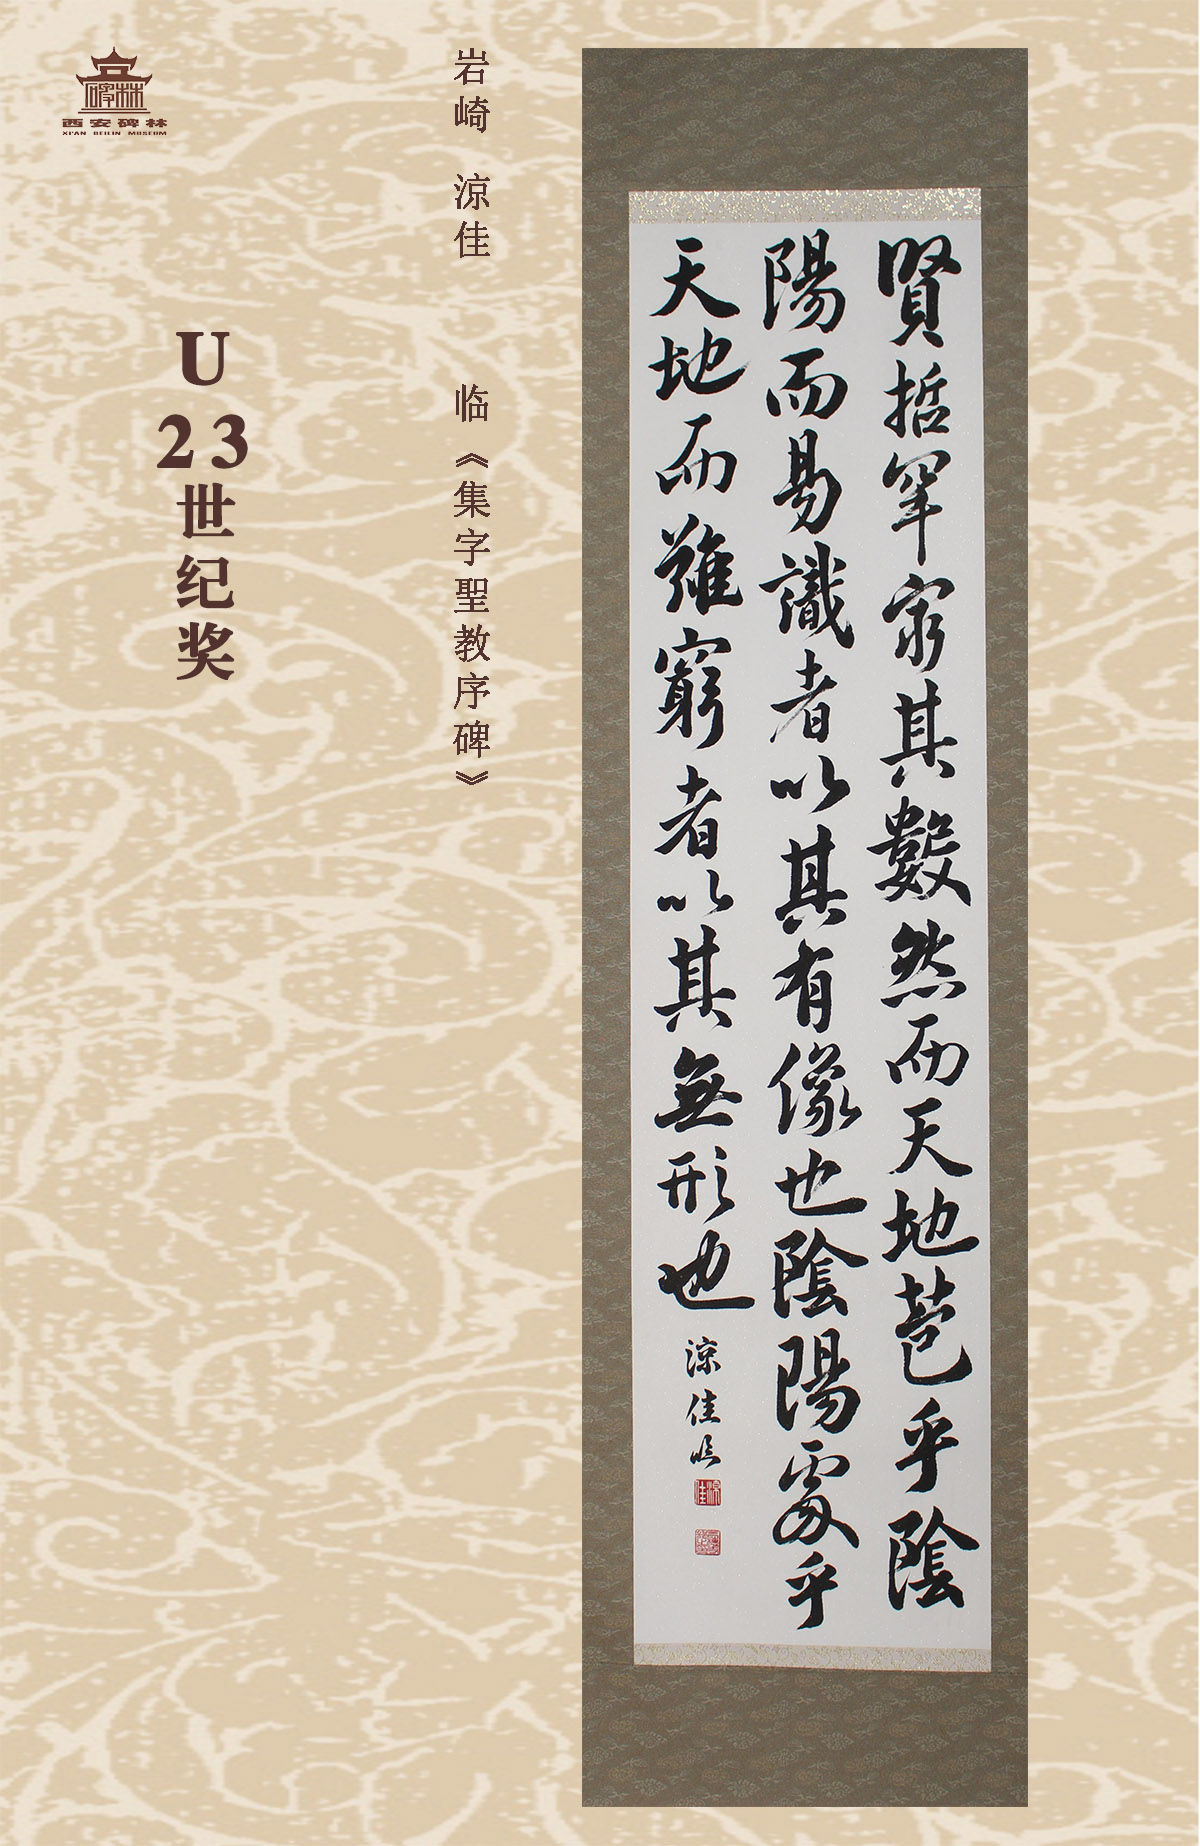 賢哲罕窮其數然而天地苞乎陰
陽而易識者以其有像也陰陽處乎
天地而難窮者以其無形也
涼佳臨
涼佳
岩崎 涼佳 临《集字聖教序碑》
U
23
世纪奖
碑林
西安碑林
XI'AN BEILIN MUSEUM